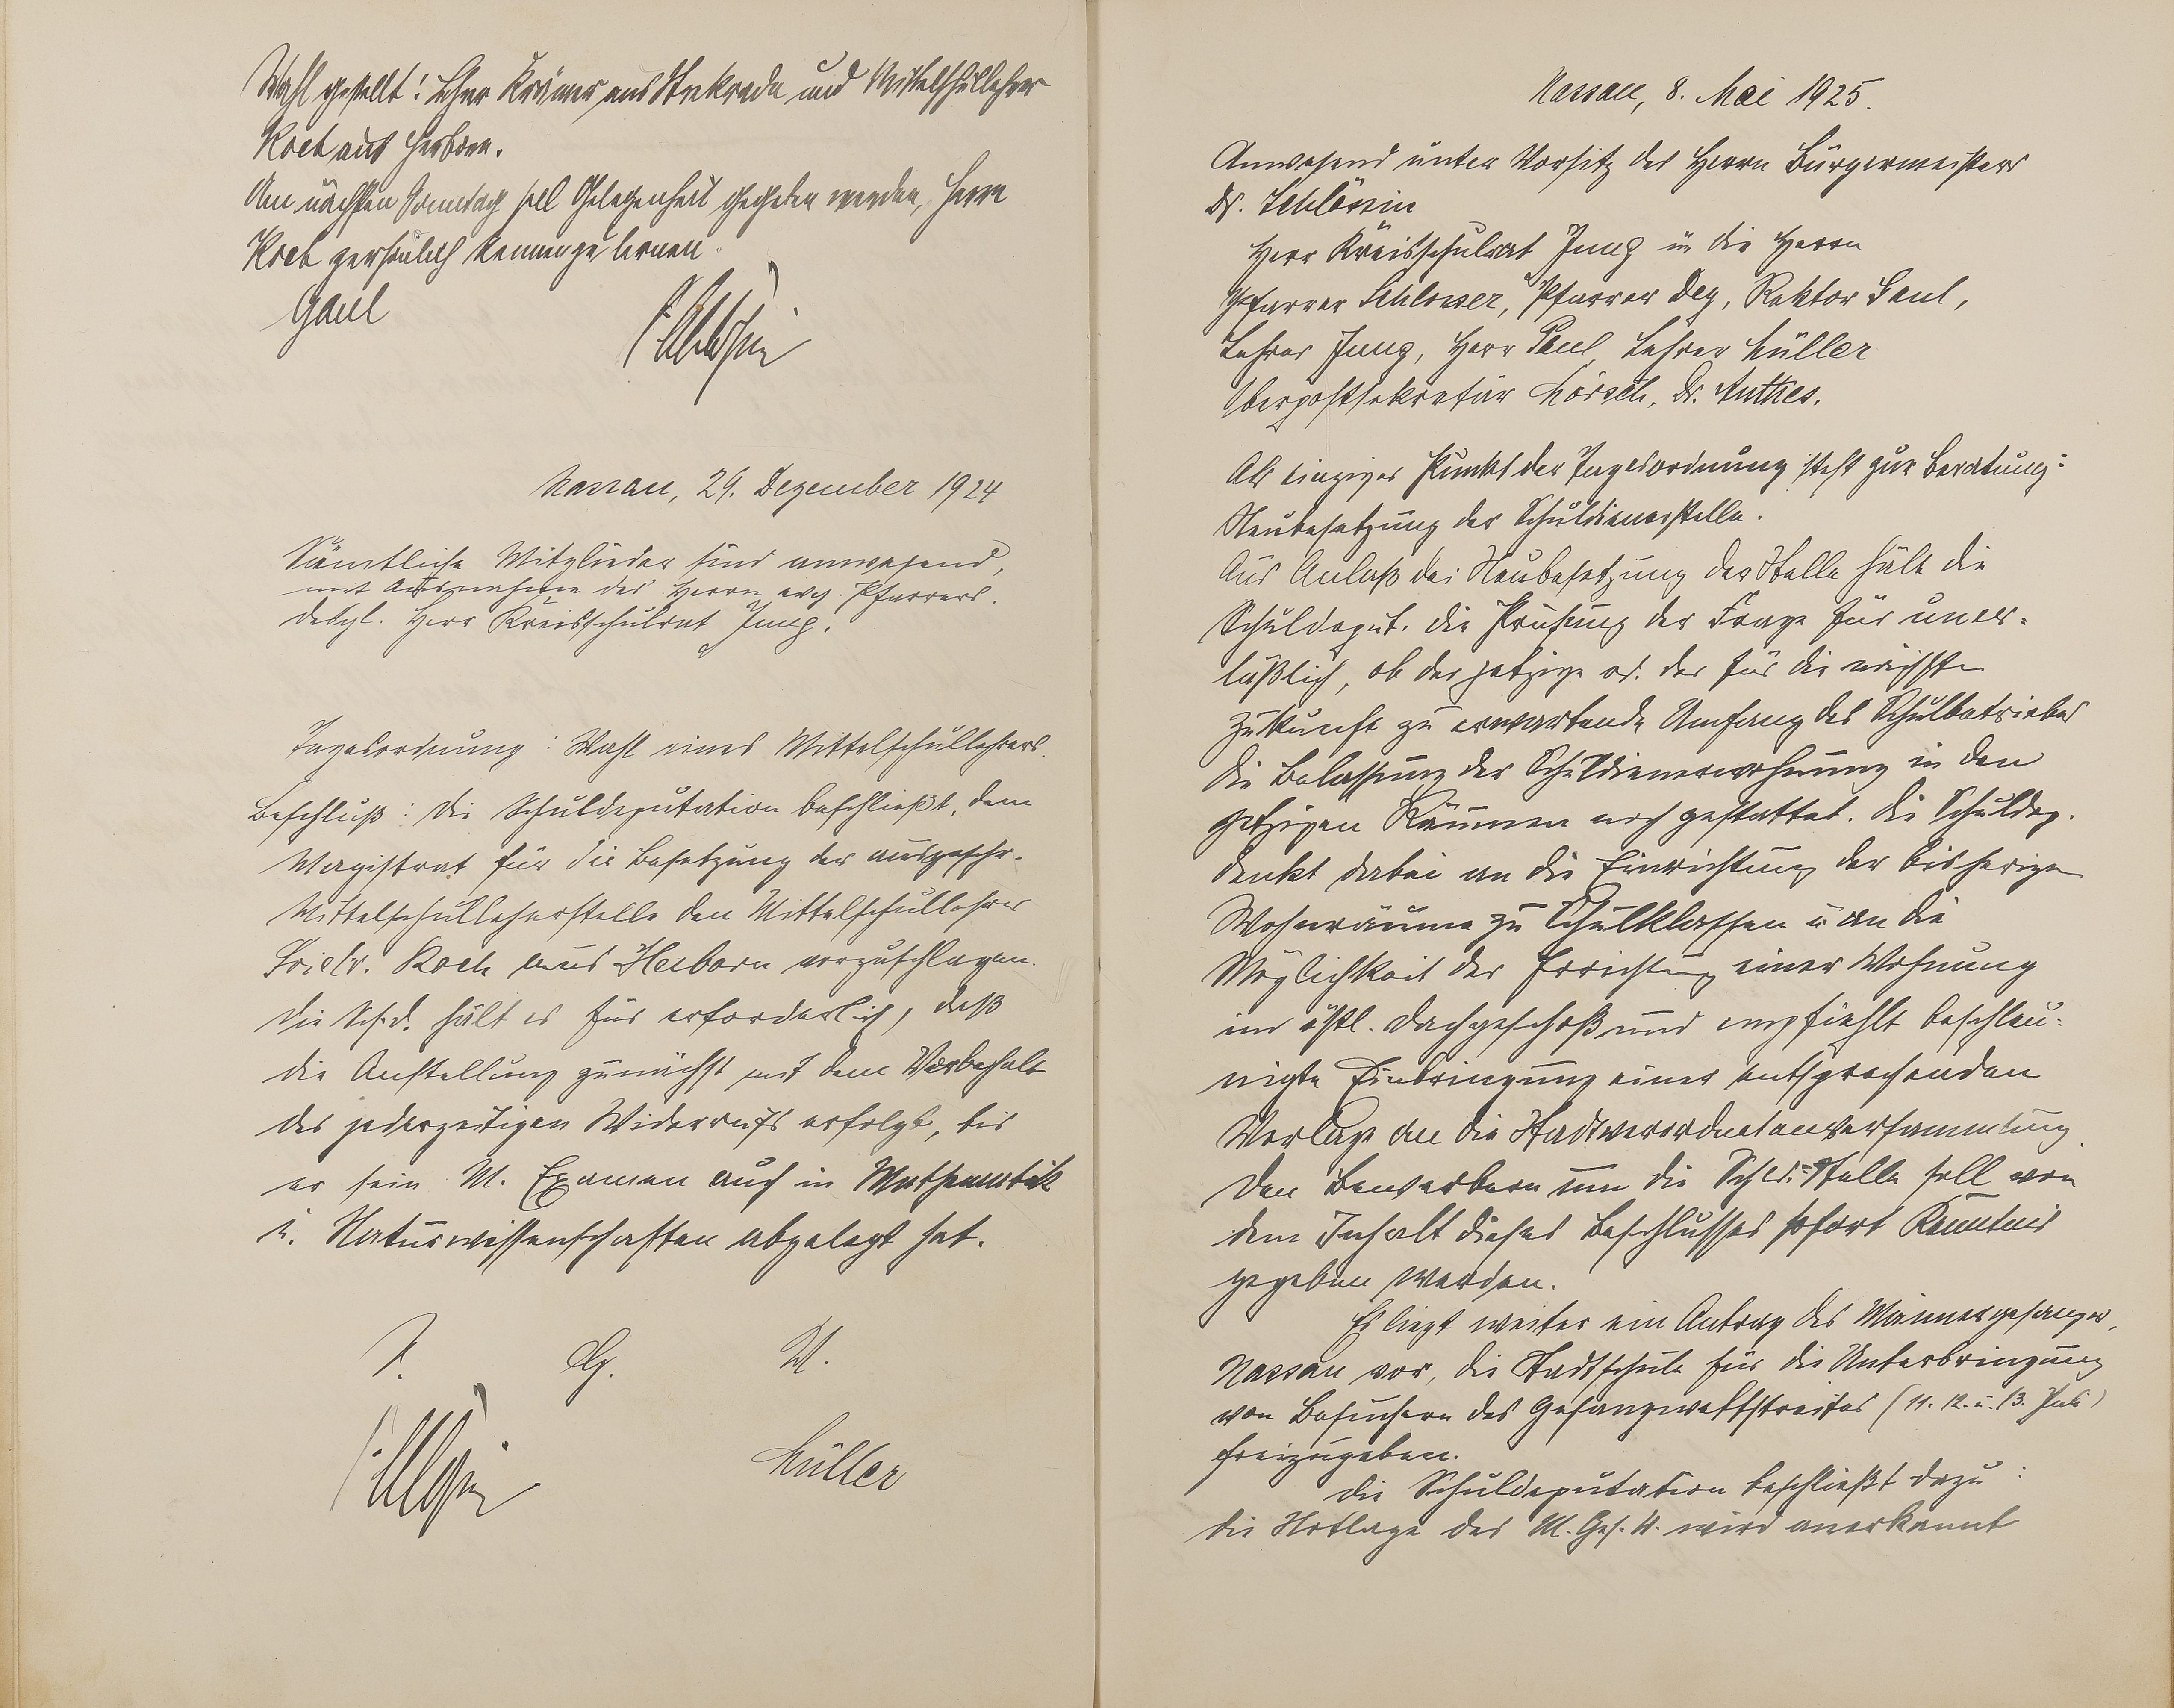 Wahl gestellt: Lehrer Krämer aus Sterkrade und Mittelschullehrer
Koch aus Herborn.
Am nächsten Sonntag soll Gelegenheit gegeben werden, Herrn
Koch persönlich kennenzulernen.
Gaul
Nassau, 29. Dezember 1924
Sämtliche Mitglieder sind anwesend,
mit Ausnahme des Herrn evg. Pfarrers.
desgl. Herr Kreisschulrat Jung.
Tagesordnung: Wahl eines Mittelschullehrers.
Beschluß: Die Schuldeputation beschließt, dem
Magistrat für die Besetzung der ausgeschr.
Mittelschullehrerstelle den Mittelschullehrer
Friedr. Koch aus Herborn vorzuschlagen.
Die Sch.d. hält es für erforderlich, daß
die Anstellung zunächst mit dem Vorbehalt
des jederzeitigen Widerrufs erfolgt, bis
er sein M. Examen auch in Mathematik
u. Naturwissenschaften abgelegt hat.
V. G. U.
Müller
Nassau, 8. Mai 1925.
Anwesend unter Vorsitz des Herrn Bürgermeisters
Dr. Schlössin
Herr Kreisschulrat Jung u. die Herrn
Pfarrer Schlosser, Pfarrer Dey, Rektor Gaul,
Lehrer Jung, Herr Paul, Lehrer Müller
Oberpostsekretär Lörsch, Dr. Anthes.
Als einziger Punkt der Tagesordnung steht zur Beratung:
Neubesetzung der Schuldienerstelle.
Aus Anlaß der Neubesetzung der Stelle hält die
Schuldeput. die Prüfung der Frage für uner-
läßlich, ob der jetzige od. der für die nächste
Zukunft zu erwartende Umfang des Schulbetriebes
die Belassung der Schuldienerwohnung in den
jetzigen Räumen noch gestattet. Die Schuldep.
denkt dabei an die Einrichtung der bisherigen
Wohnräume zu Schulklassen u. an die
Möglichkeit der Errichtung einer Wohnung
im östl. Dachgeschoß und empfiehlt beschleu-
nigte Einbringung einer entsprechenden
Vorlage an die Stadtverordnetenversammlung.
Den Bewerbern um die Schd.-Stelle soll von
dem Inhalt dieses Beschlusses sofort Kenntnis
gegeben werden.
Es liegt weiter ein Antrag des Männergesangv.
Nassau vor, die Stadtschule für die Unterbringung
von Besuchern des Gesangwettstreites (11. 12. u. 13. Juli)
freizugeben.
Die Schuldeputation beschließt dazu:
Die Notlage des M. Ges. V. wird anerkannt